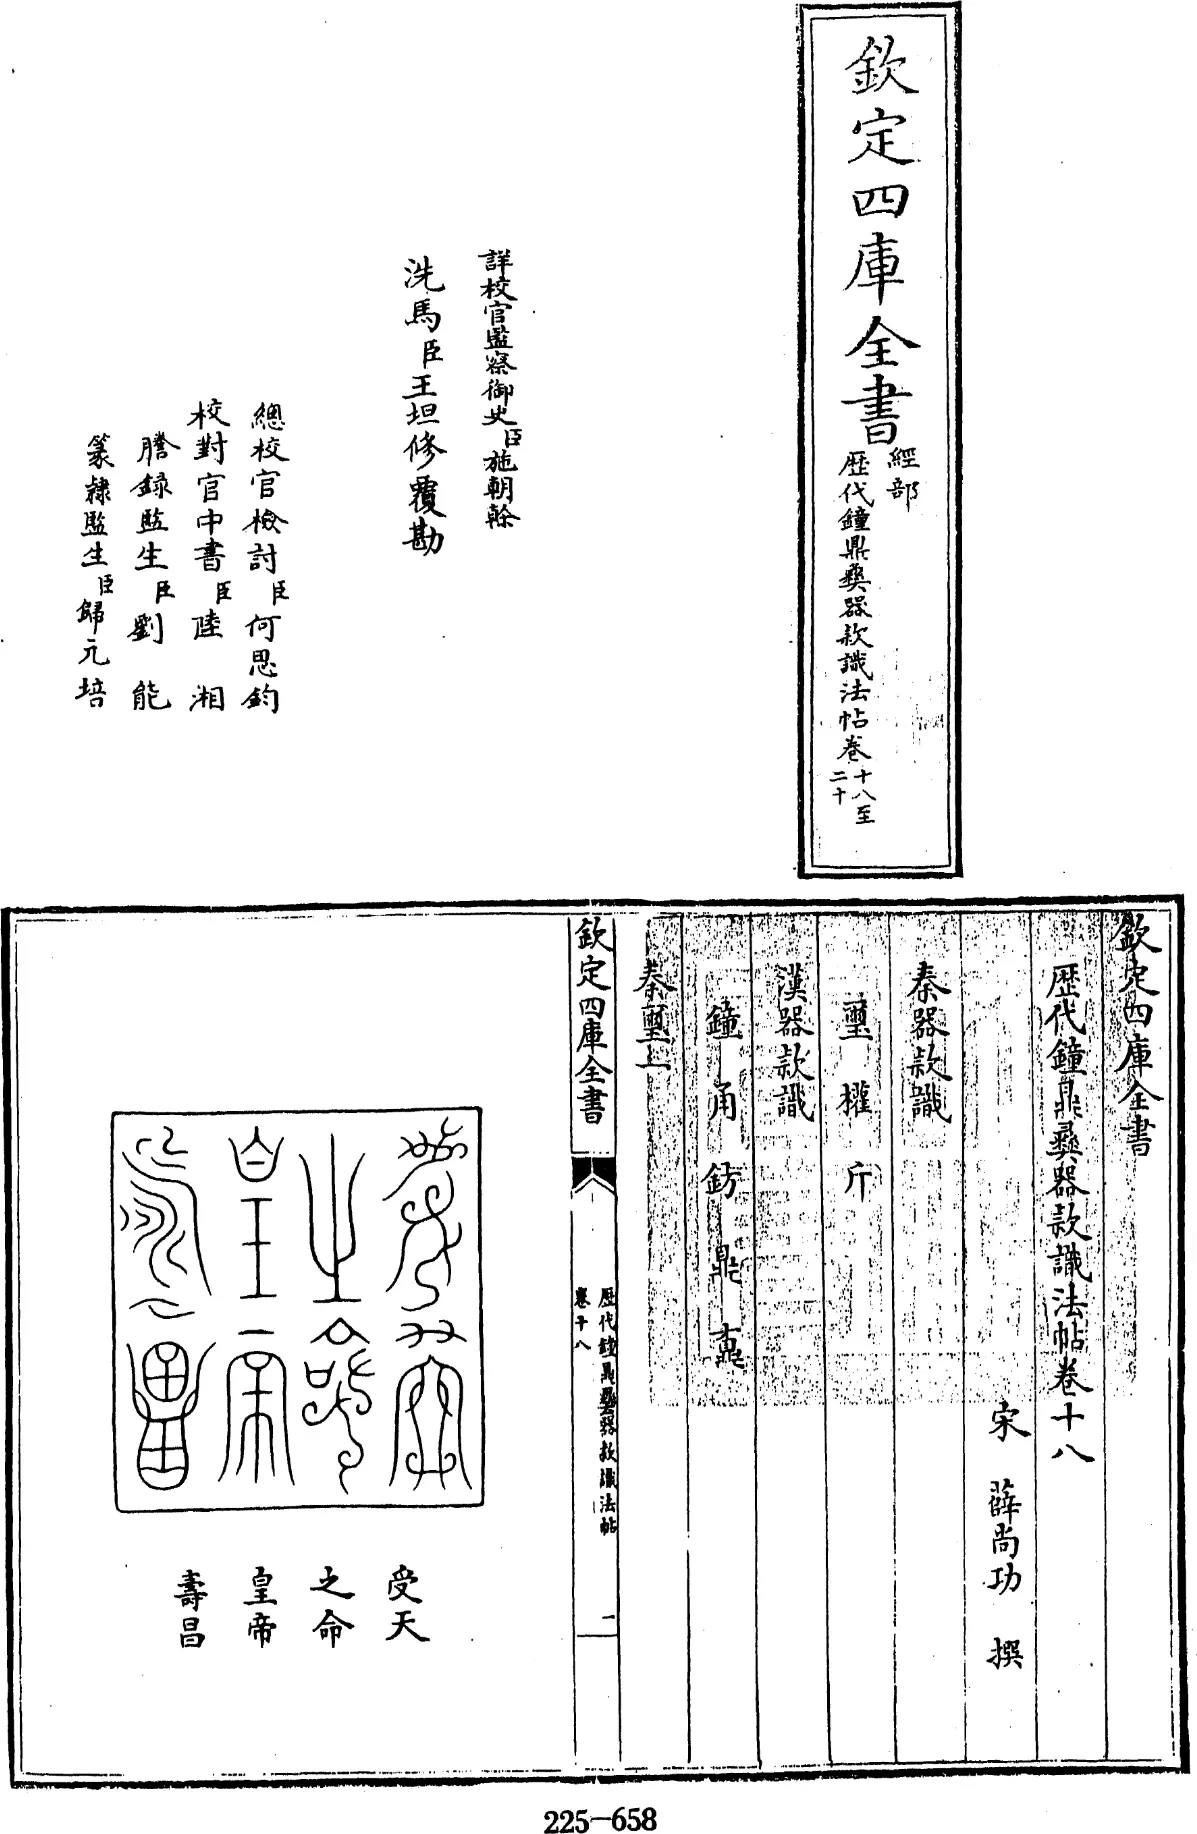 欽定四庫全書
經部
歷代鐘鼎彝器款識法帖卷十八至二十
詳校官監察御史臣施朝榦
洗馬臣王坦修覆勘
總校官檢討臣何思鈞
校對官中書臣陸湘
謄錄監生臣劉能
篆隸監生臣歸元培
欽定四庫全書
歷代鐘鼎彝器款識法帖卷十八
宋 薛尚功 撰
秦器款識
璽 權 斤
漢器款識
鐘 甬 鈁 鼎
秦璽上
欽定四庫全書
歷代鐘鼎彝器款識法帖
卷十八
一
受天
之命
皇帝
壽昌
225-658